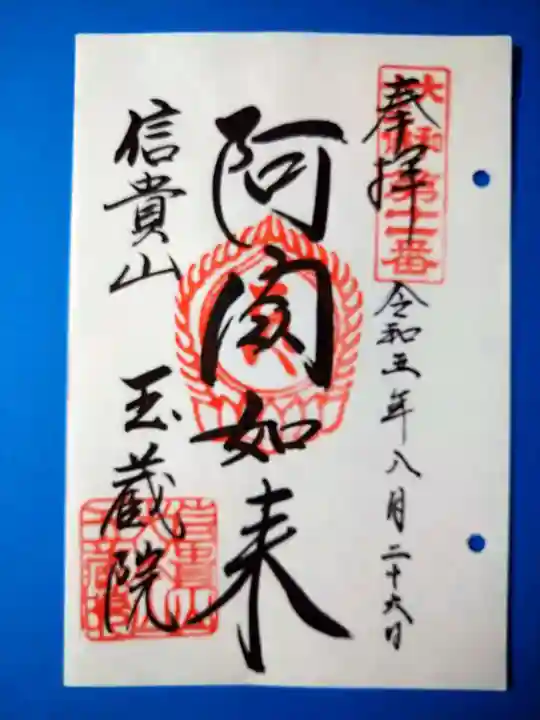 奉拝
大和
第十二番
令和五年八月二十六日
阿閦如来
信貴山
玉蔵院